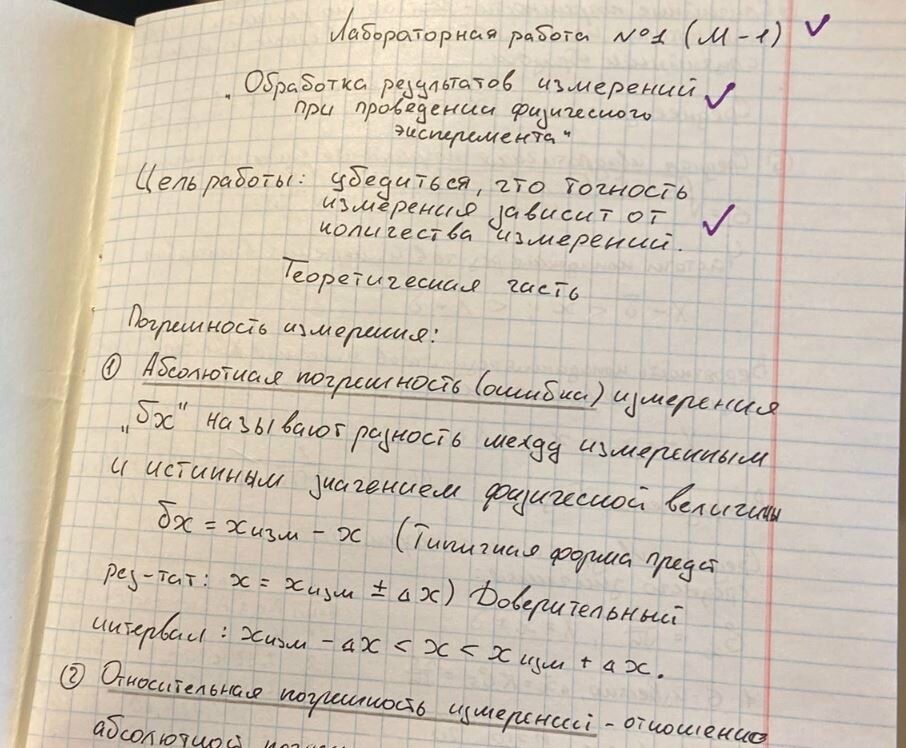 Лабораторная работа №1 (М-1)
„Обработка результатов измерений
при проведении физического
эксперемента"
Цель работы: убедиться, что точность
измерения зависит от
количества измерений.
Теоретическая часть
Погрешность измерения:
① Абсолютная погрешность (ошибка) измерения
„δx" называют разность между измеренным
и истинным значением физической величины
δx = x изм - x (Типичная форма предст
рез-тат: x = x изм ± Δx) Доверительный
интервал: x изм - Δx < x < x изм + Δx.
② Относительная погрешность измерений - отношение
абсолютной